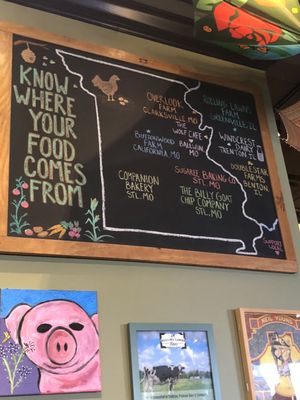 KNOW
WHERE
YOUR
FOOD
COMES
FROM
OVERLOOK
FARM
CLARKSVILLE, MO
THE
WOLF CAFE
BALLWIN
MO
BUTTONWOOD
FARM
CALIFORNIA, MO
COMPANION
BAKERY
STL, MO
SUGAREE BAKING CO
STL, MO
THE BILLY GOAT
CHIP COMPANY
STL, MO
ROLLING LAWNS
FARM
GREENVILLE, IL
WINDCREST
DAIRY
TRENTON, IL
DOUBLE STAR
FARMS
BENTON,
IL
SUPPORT
LOCAL
NEIL YOUNG